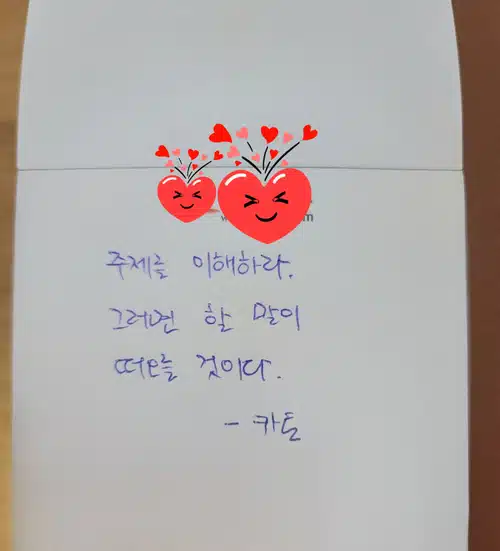 주제를 이해하라.
그러면 할 말이
떠오를 것이다.
- 카토